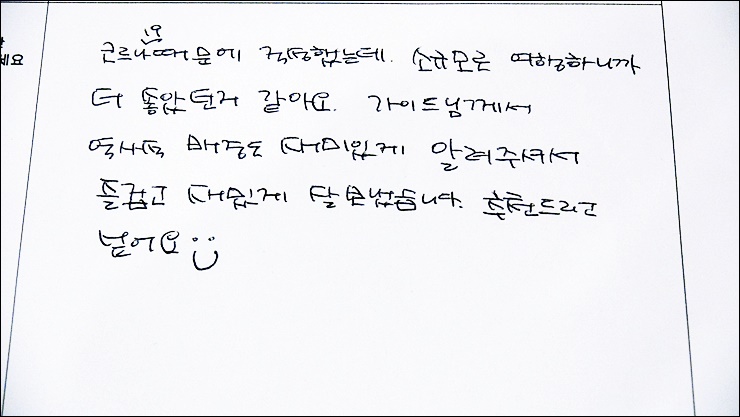 코르나19때문에 걱정했는데. 소규모로 여행하니까
더 좋았던거 같아요. 가이드님께서
역사적 배경도 재미있게 알려주셔서
즐겁고 재밌게 잘 보냈습니다. 추천드리고
싶어요
세요